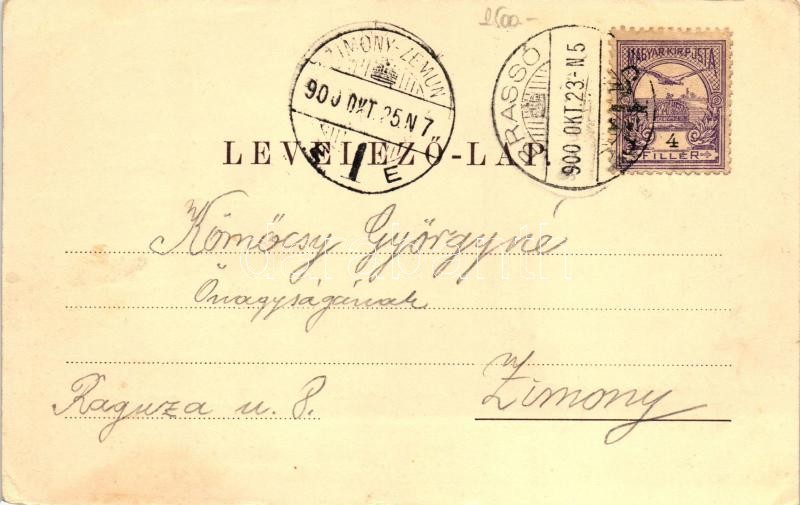 2500.-
ZIMONY-ZEMUN
900 OKT. 25 N 7
1
E
BRASSÓ
900 OKT. 23-N5
MAGYAR KIR. POSTA
4
FILLÉR
LEVELEZŐ-LAP.
Kömöcsy Györgyné
Őnagyságának
Zimony
Raguza u. 8.